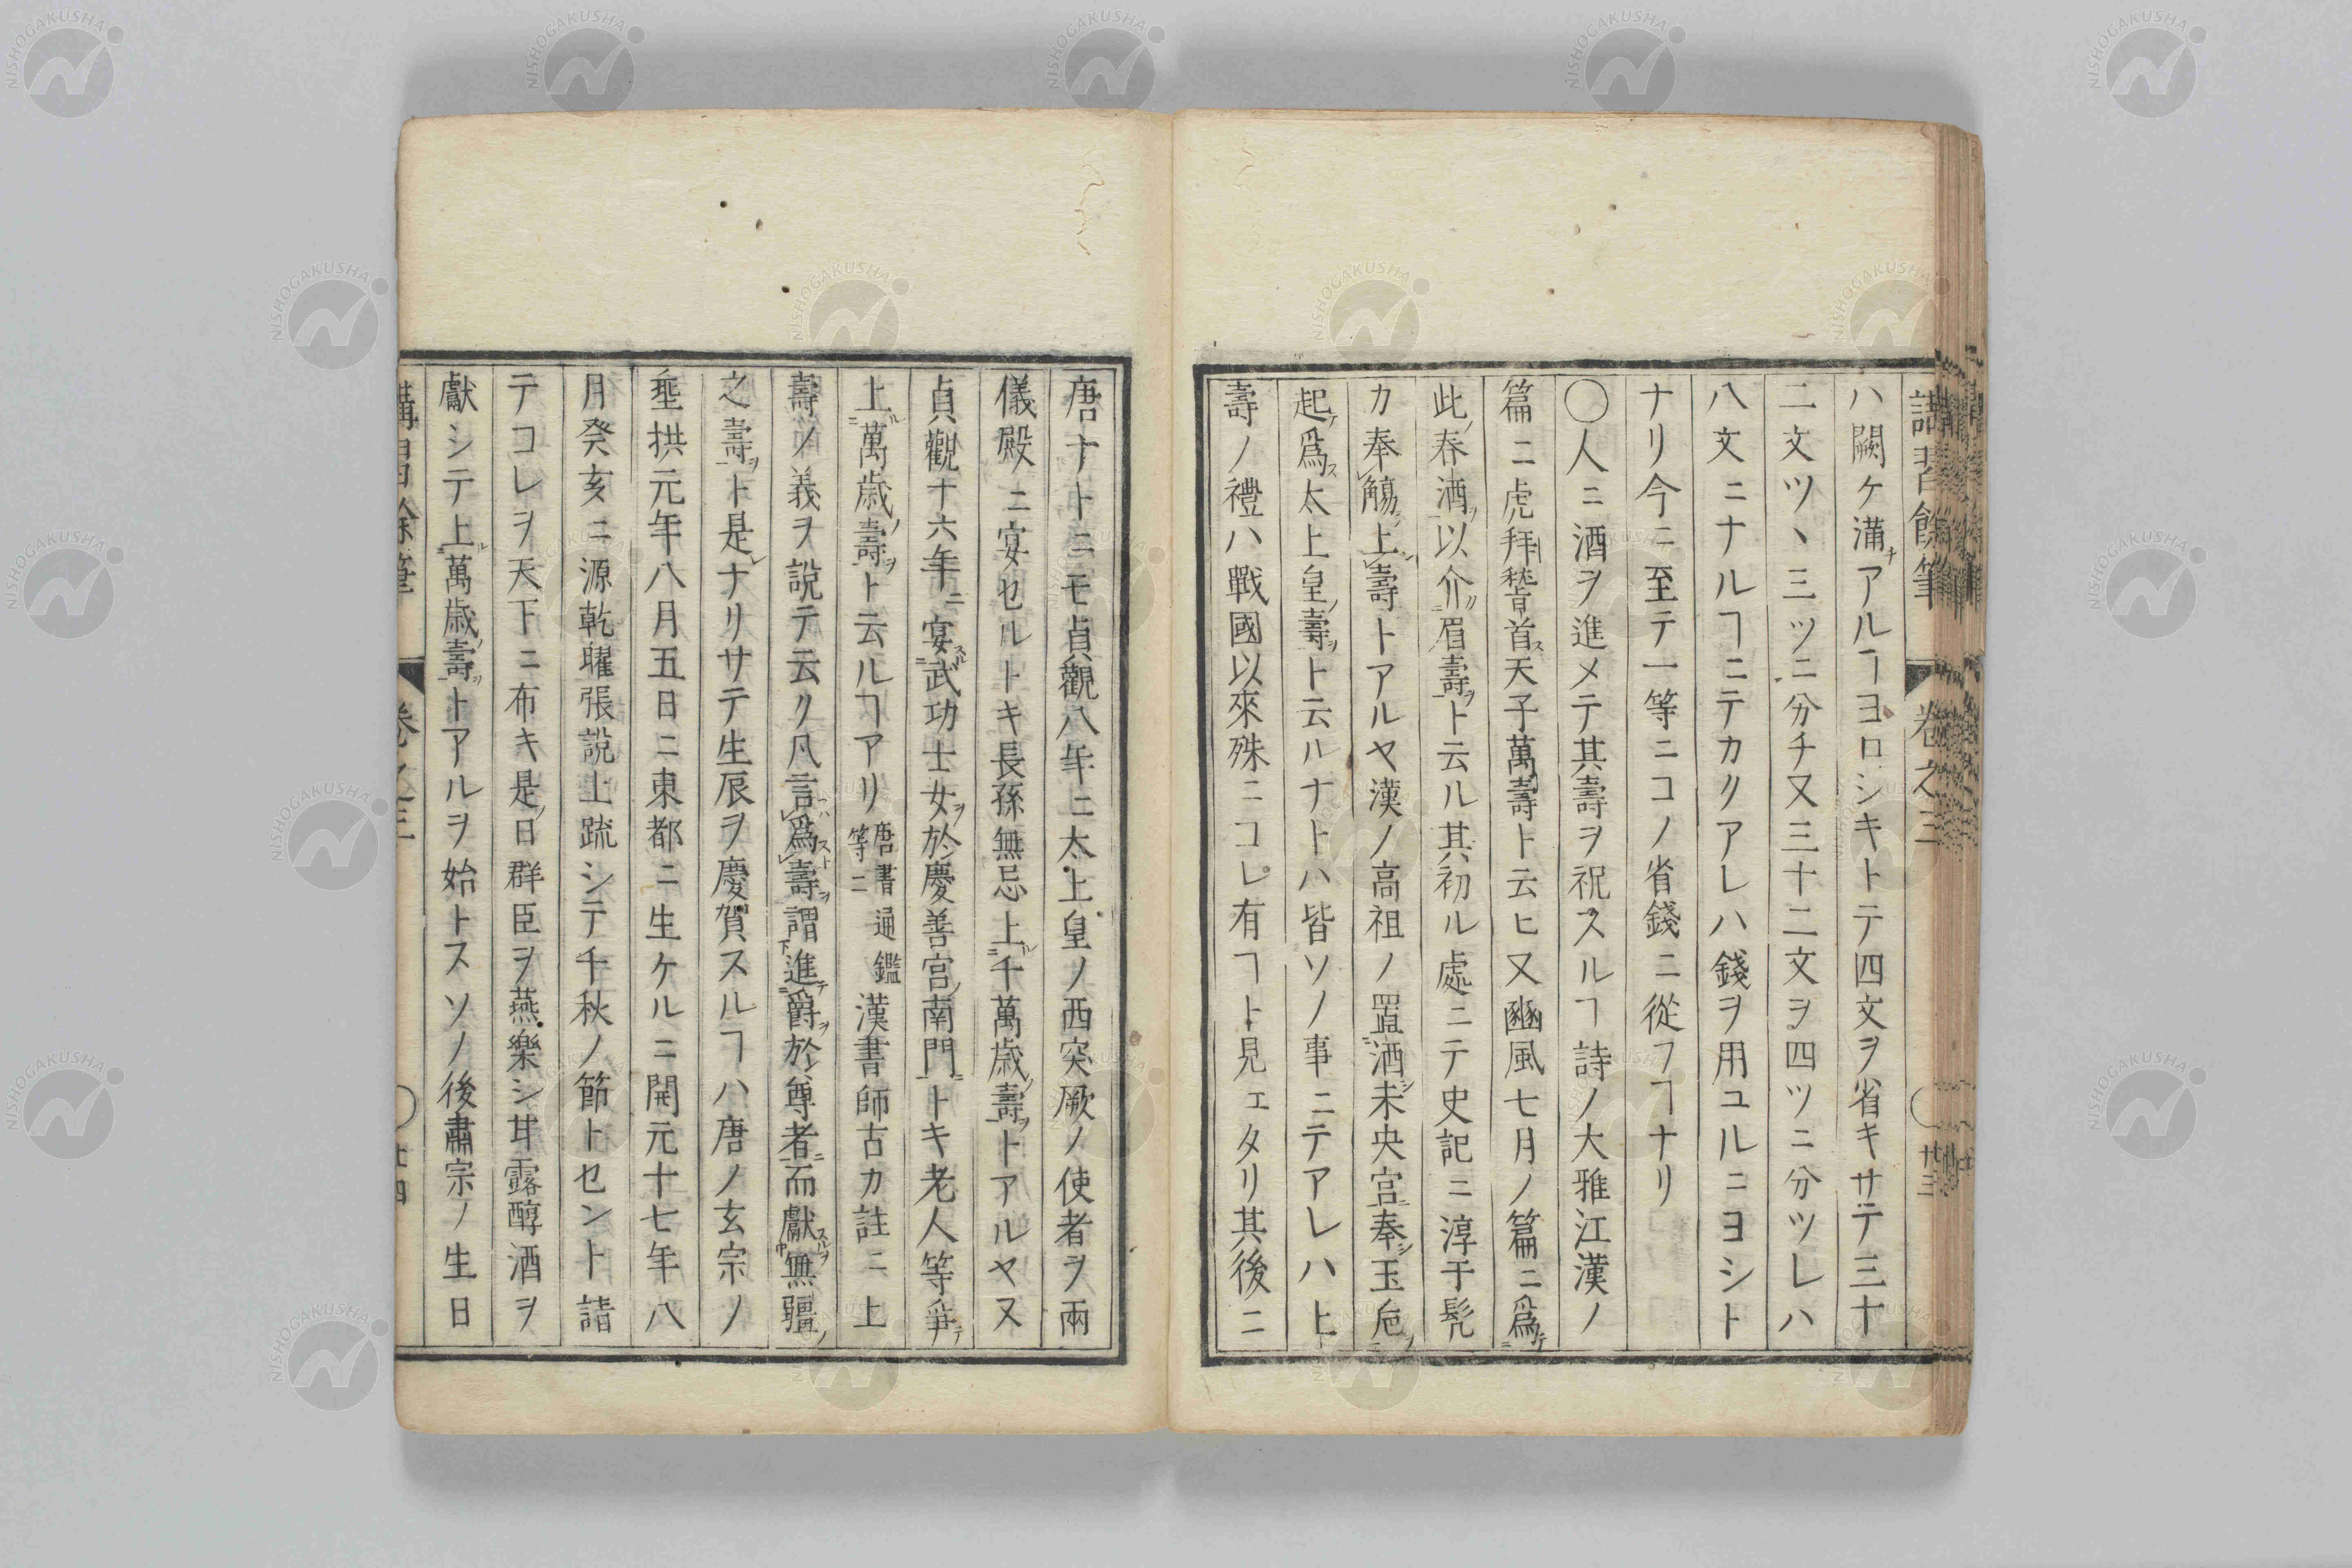 講習餘筆 卷之三 廿三
ハ闕ケ滿ナアルヿヨロシキトテ四文ヲ省キサテ三十
二文ツヽ三ツニ分チ又三十二文ヲ四ツニ分ツレハ
八文ニナルヿニテカクアレハ錢ヲ用ユルニヨシト
ナリ今ニ至テ一等ニコノ省錢ニ從フヿナリ
〇人ニ酒ヲ進メテ其壽ヲ祝スルヿ詩ノ大雅江漢ノ
篇ニ虎拜稽首ス天子萬壽ト云ヒ又豳風七月ノ篇ニ爲テ
此ノ春酒ヲ以介眉壽ヲト云ル其初ル處ニテ史記ニ淳于髠
カ奉觴上壽トアルヤ漢ノ高祖ノ置酒未央宮奉玉巵ヲ
起テ爲ス太上皇ノ壽ヲト云ルナトハ皆ソノ事ニテアレハ上
壽ノ禮ハ戰國以來殊ニコレ有ヿト見エタリ其後ニ
唐ナトニモ貞觀八年ニ太上皇ノ西突厥ノ使者ヲ兩
儀殿ニ宴セルトキ長孫無忌上ル千萬歳ノ壽ヲトアルヤ又
貞觀十六年ニ宴スル武功士女ヲ於慶善宮ノ南門ニトキ老人等爭テ
上ル萬歳ノ壽ヲト云ルヿアリ唐書通鑑等ニ漢書師古カ註ニ上
壽ノ義ヲ説テ云ク凡言爲壽謂進爵ヲ於尊者ニ而獻無疆ノ
之壽ヲト是ナリサテ生辰ヲ慶賀スルヿハ唐ノ玄宗ノ
埀拱元年八月五日ニ東都ニ生ケルニ開元十七年八
月癸亥ニ源乾曜張説上䟽シテ千秋ノ節トセント請
テコレヲ天下ニ布キ是ノ日群臣ヲ燕樂シ甘露醇酒ヲ
獻シテ上ル萬歳ノ壽ヲトアルヲ始トスソノ後肅宗ノ生日
講習餘筆 卷之三 廿四
NISHOGAKUSHA